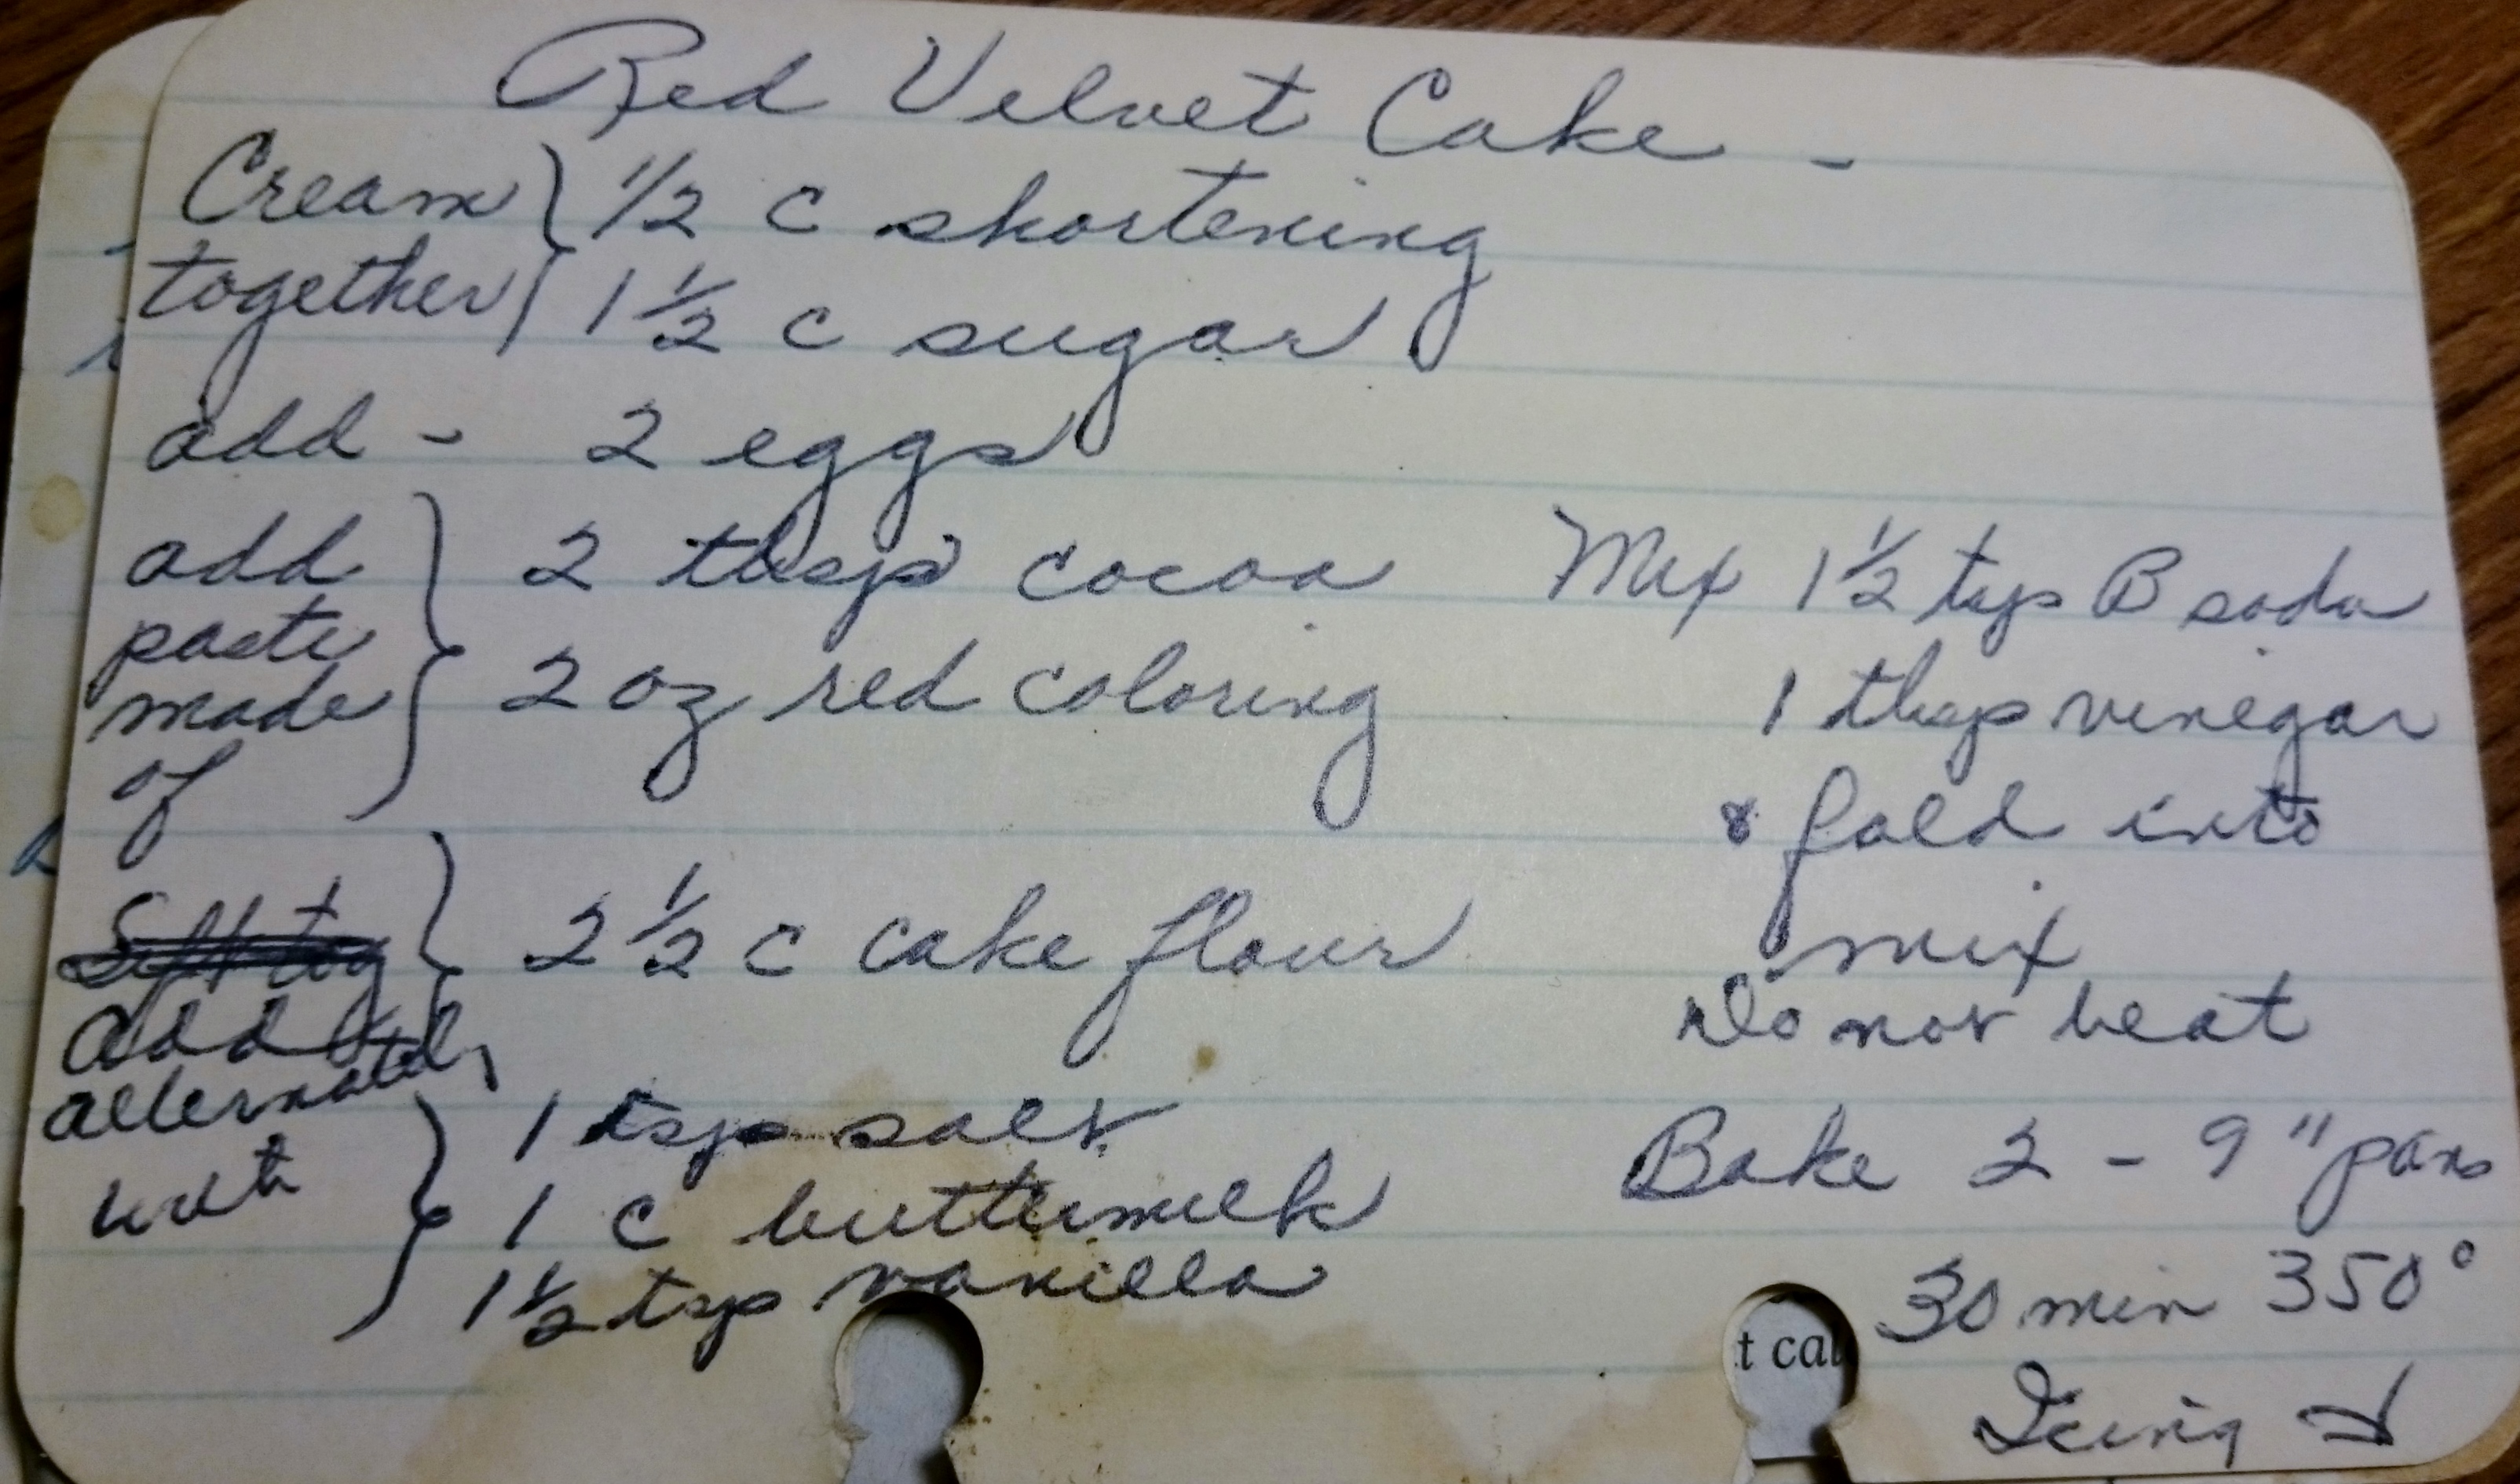 Red Velvet Cake -
Cream together } 1/2 c shortening
1 1/2 c sugar
add - 2 eggs
add paste made of } 2 tbsp cocoa
2 oz red coloring
add alternately } 2 1/2 c cake flour
with } 1 tsp salt
1 c buttermilk
1 1/2 tsp vanilla
Mix 1 1/2 tsp B soda
1 tbsp vinegar
& fold into
mix
Do not beat
Bake 2 - 9" pans
30 min 350°
Icing
t cal